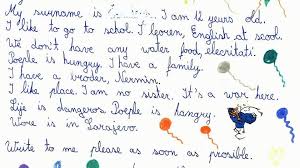 My surname is I am 12 years old.
I like to go to schol. I leoren, English at scool.
We don't have any water food, elecritati.
Poeple is hungry. I have a family.
I have a broder, Nermin.
I like place. I am no sister. It's a war here.
Life is dangeros. Poeple is hangry.
Wore is in Sarajevo.
Write to me please as soon as prosible.